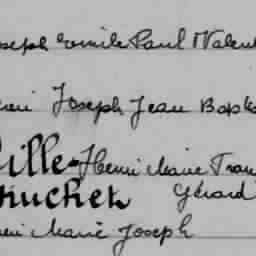 Joseph Emile Paul Valen
Henri Joseph Jean Bapt
Lille Henri Marie Fran
Gérard
Henri Marie Joseph